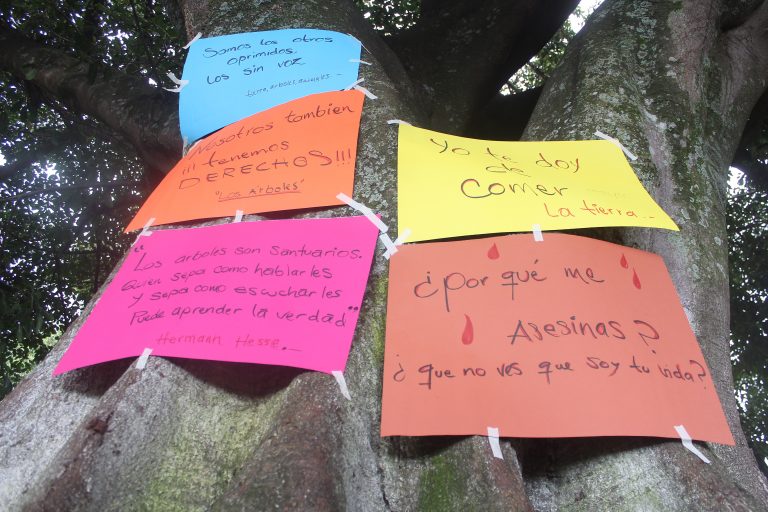 Somos los otros
oprimidos.
Los sin voz
tierra, arboles, animales...
Nosotros tambien
!!! tenemos
DERECHOS!!!
"Los Arboles"
"Los arboles son santuarios.
Quien sepa como hablarles
y sepa como escucharles
Puede aprender la verdad"
Hermann Hesse._
Yo te doy
de
Comer
La tierra...
¿Por qué me
Asesinas?
¿que no ves que soy tu vida?